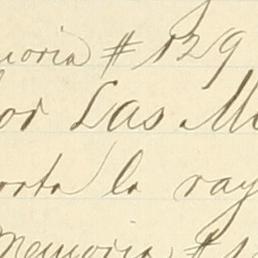 moria # 129
or Las M
orta la ray
Memoria # 1